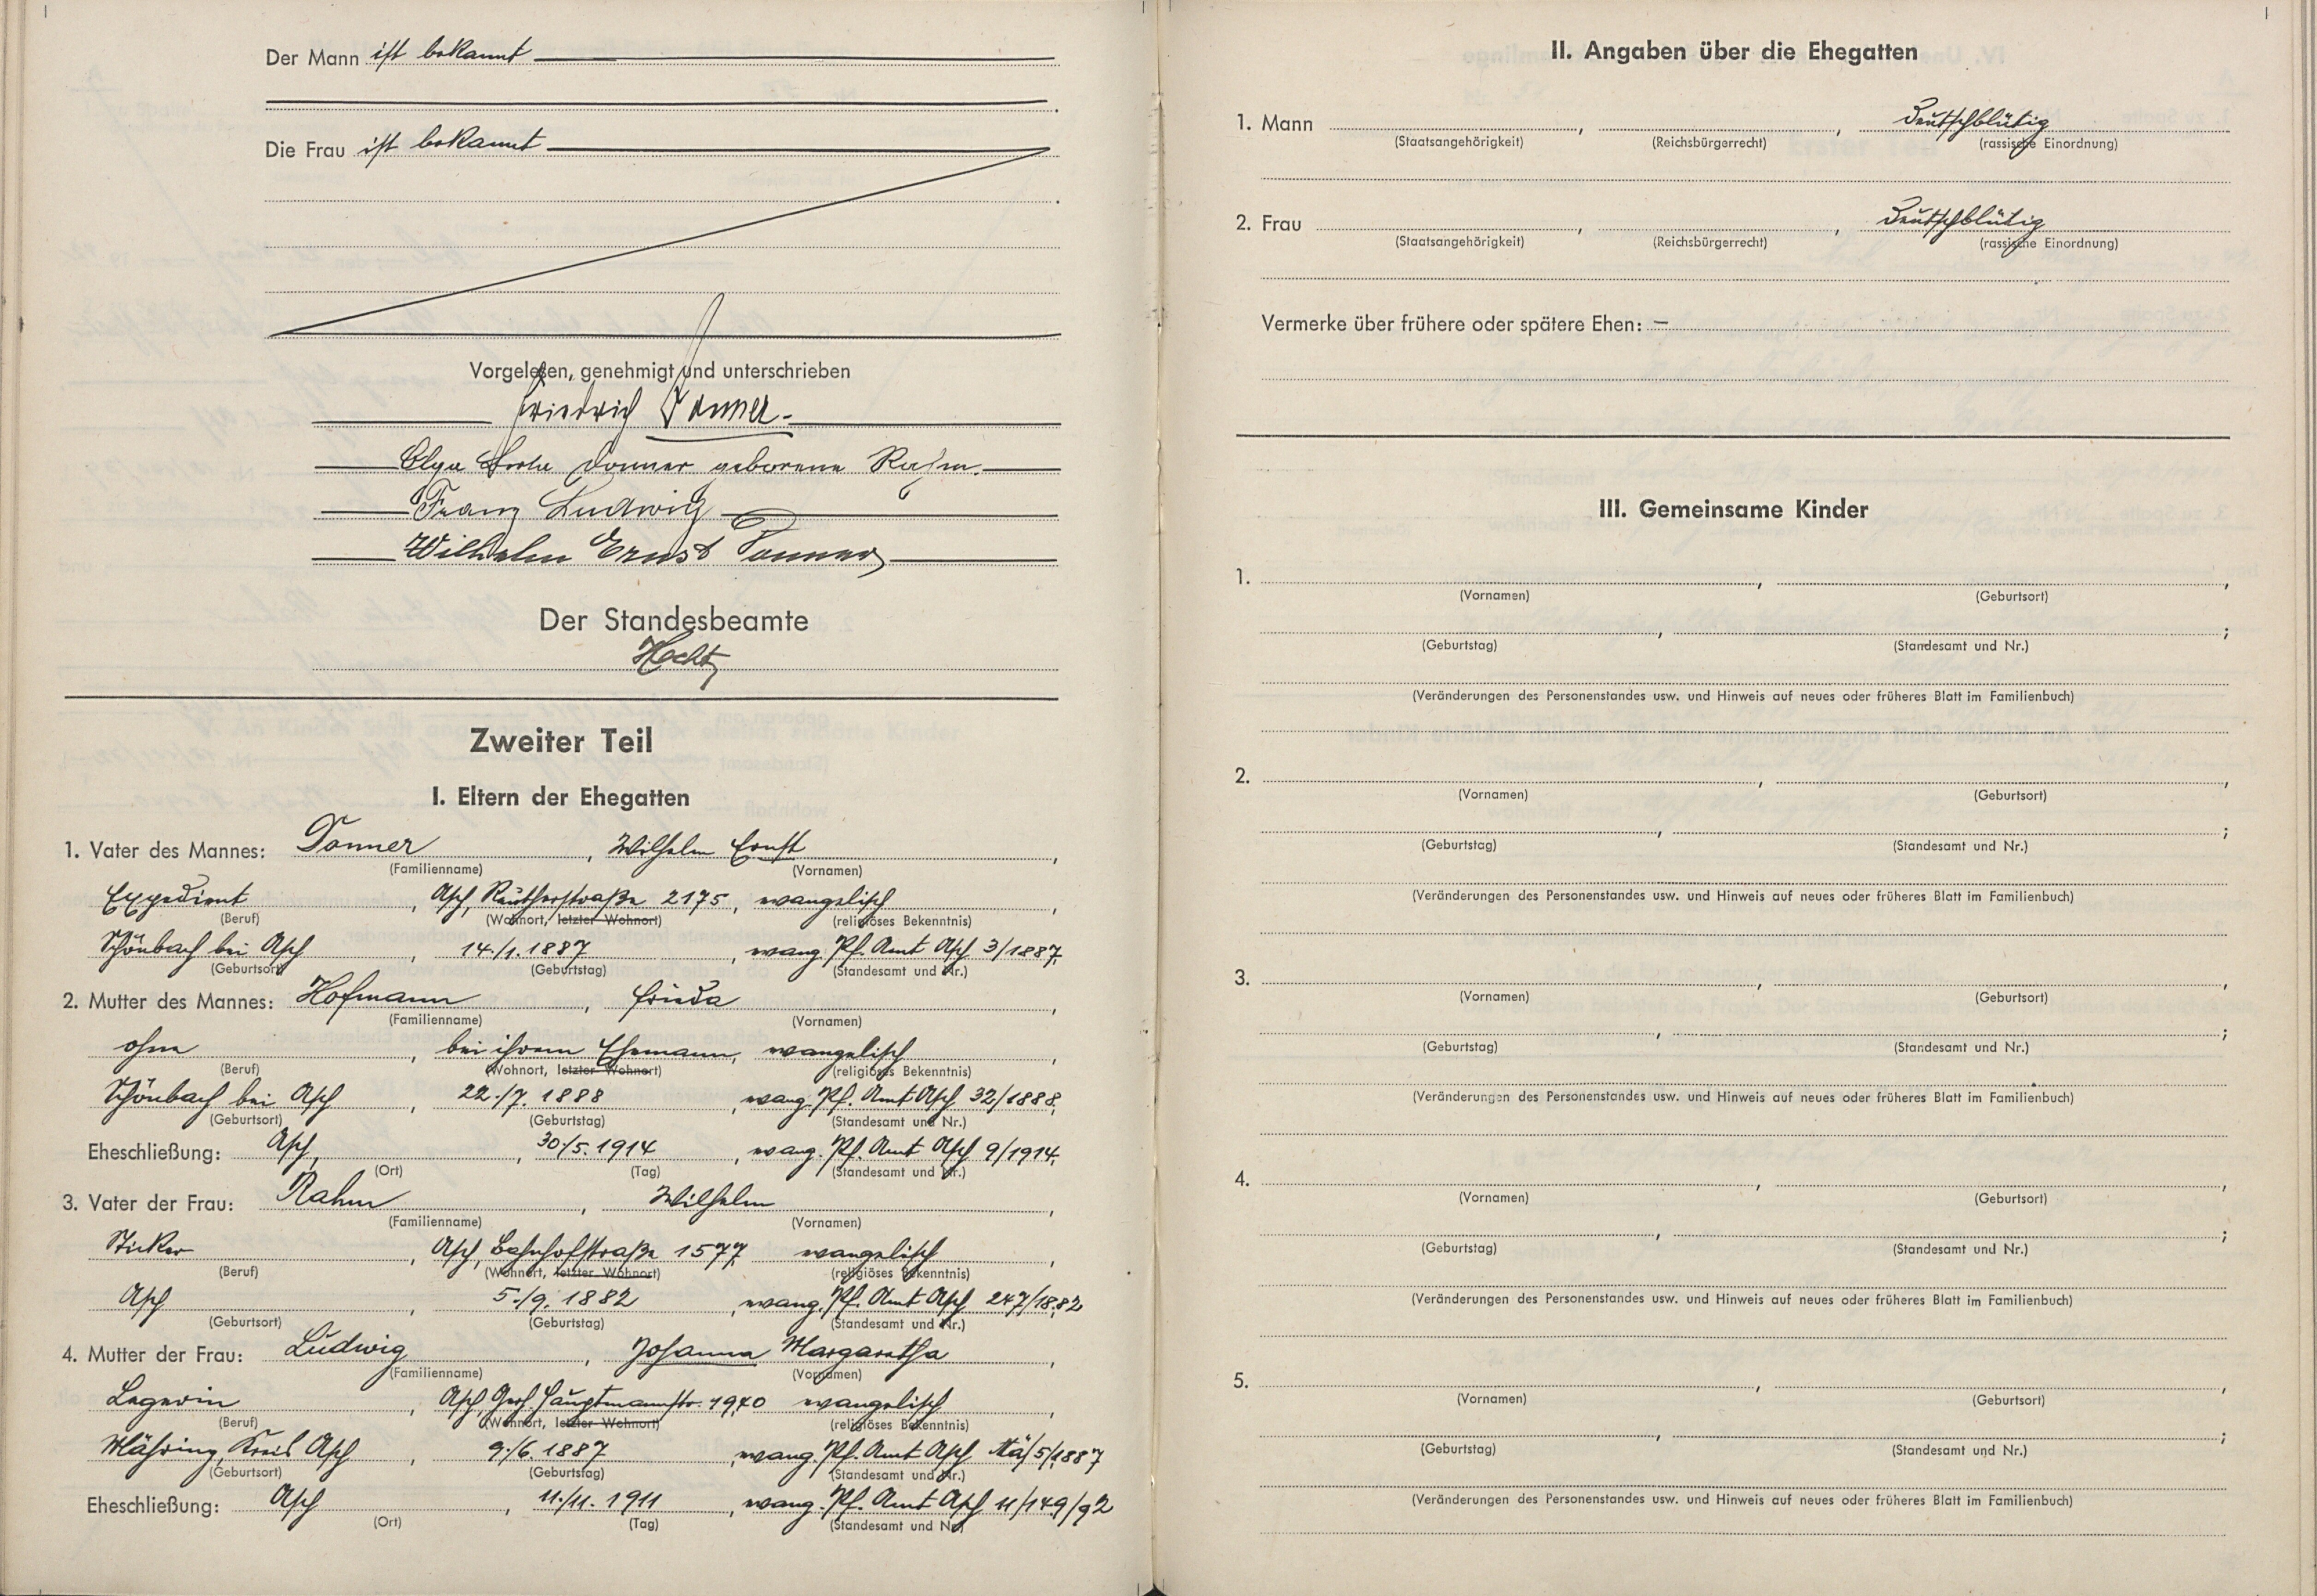 Der Mann ist bekannt
Die Frau ist bekannt
Vorgelesen, genehmigt und unterschrieben
Friedrich Donner.
Olga Donner geborene Rahm.
Franz Ludwig
Wilhelm Ernst Donner
Der Standesbeamte
Zweiter Teil
I. Eltern der Ehegatten
1. Vater des Mannes: Donner, Wilhelm Ernst,
(Familienname) (Vornamen)
Expedient, Asch, 2175, evangelisch,
(Beruf) (Wohnort, letzter Wohnort) (religiöses Bekenntnis)
Schönbach bei Asch, 14./1. 1887, evang. Pf. Amt Asch 3/1887,
(Geburtsort) (Geburtstag) (Standesamt und Nr.)
2. Mutter des Mannes: Hofmann, Frieda,
(Familienname) (Vornamen)
ohne, bei ihrem Ehemann, evangelisch,
(Beruf) (Wohnort, letzter Wohnort) (religiöses Bekenntnis)
Schönbach bei Asch, 22./7. 1888, evang. Pf. Amt Asch 32/1888,
(Geburtsort) (Geburtstag) (Standesamt und Nr.)
Eheschließung: Asch, 30./5. 1914, evang. Pf. Amt Asch 9/1914,
(Ort) (Tag) (Standesamt und Nr.)
3. Vater der Frau: Rahm, Wilhelm,
(Familienname) (Vornamen)
Sticker, Asch, Bahnhofstraße 1577, evangelisch,
(Beruf) (Wohnort, letzter Wohnort) (religiöses Bekenntnis)
Asch, 5./9. 1882, evang. Pf. Amt Asch 247/1882
(Geburtsort) (Geburtstag) (Standesamt und Nr.)
4. Mutter der Frau: Ludwig, Johanna Margaretha,
(Familienname) (Vornamen)
Legerin, Asch, Gerh. Hauptmannstr. 1940 evangelisch,
(Beruf) (Wohnort, letzter Wohnort) (religiöses Bekenntnis)
Mähring, Kreis Asch, 9./6. 1887, evang. Pf. Amt Asch Mä/5/1887
(Geburtsort) (Geburtstag) (Standesamt und Nr.)
Eheschließung: Asch, 11./11. 1911, evang. Pf. Amt Asch 11/149/92
(Ort) (Tag) (Standesamt und Nr.)
II. Angaben über die Ehegatten
1. Mann , , Deutschblütig
(Staatsangehörigkeit) (Reichsbürgerrecht) (rassische Einordnung)
2. Frau , , Deutschblütig
(Staatsangehörigkeit) (Reichsbürgerrecht) (rassische Einordnung)
Vermerke über frühere oder spätere Ehen: –
III. Gemeinsame Kinder
1. , ,
(Vornamen) (Geburtsort)
, ;
(Geburtstag) (Standesamt und Nr.)
(Veränderungen des Personenstandes usw. und Hinweis auf neues oder früheres Blatt im Familienbuch)
2. , ,
(Vornamen) (Geburtsort)
, ;
(Geburtstag) (Standesamt und Nr.)
(Veränderungen des Personenstandes usw. und Hinweis auf neues oder früheres Blatt im Familienbuch)
3. , ,
(Vornamen) (Geburtsort)
, ;
(Geburtstag) (Standesamt und Nr.)
(Veränderungen des Personenstandes usw. und Hinweis auf neues oder früheres Blatt im Familienbuch)
4. , ,
(Vornamen) (Geburtsort)
, ;
(Geburtstag) (Standesamt und Nr.)
(Veränderungen des Personenstandes usw. und Hinweis auf neues oder früheres Blatt im Familienbuch)
5. , ,
(Vornamen) (Geburtsort)
, ;
(Geburtstag) (Standesamt und Nr.)
(Veränderungen des Personenstandes usw. und Hinweis auf neues oder früheres Blatt im Familienbuch)